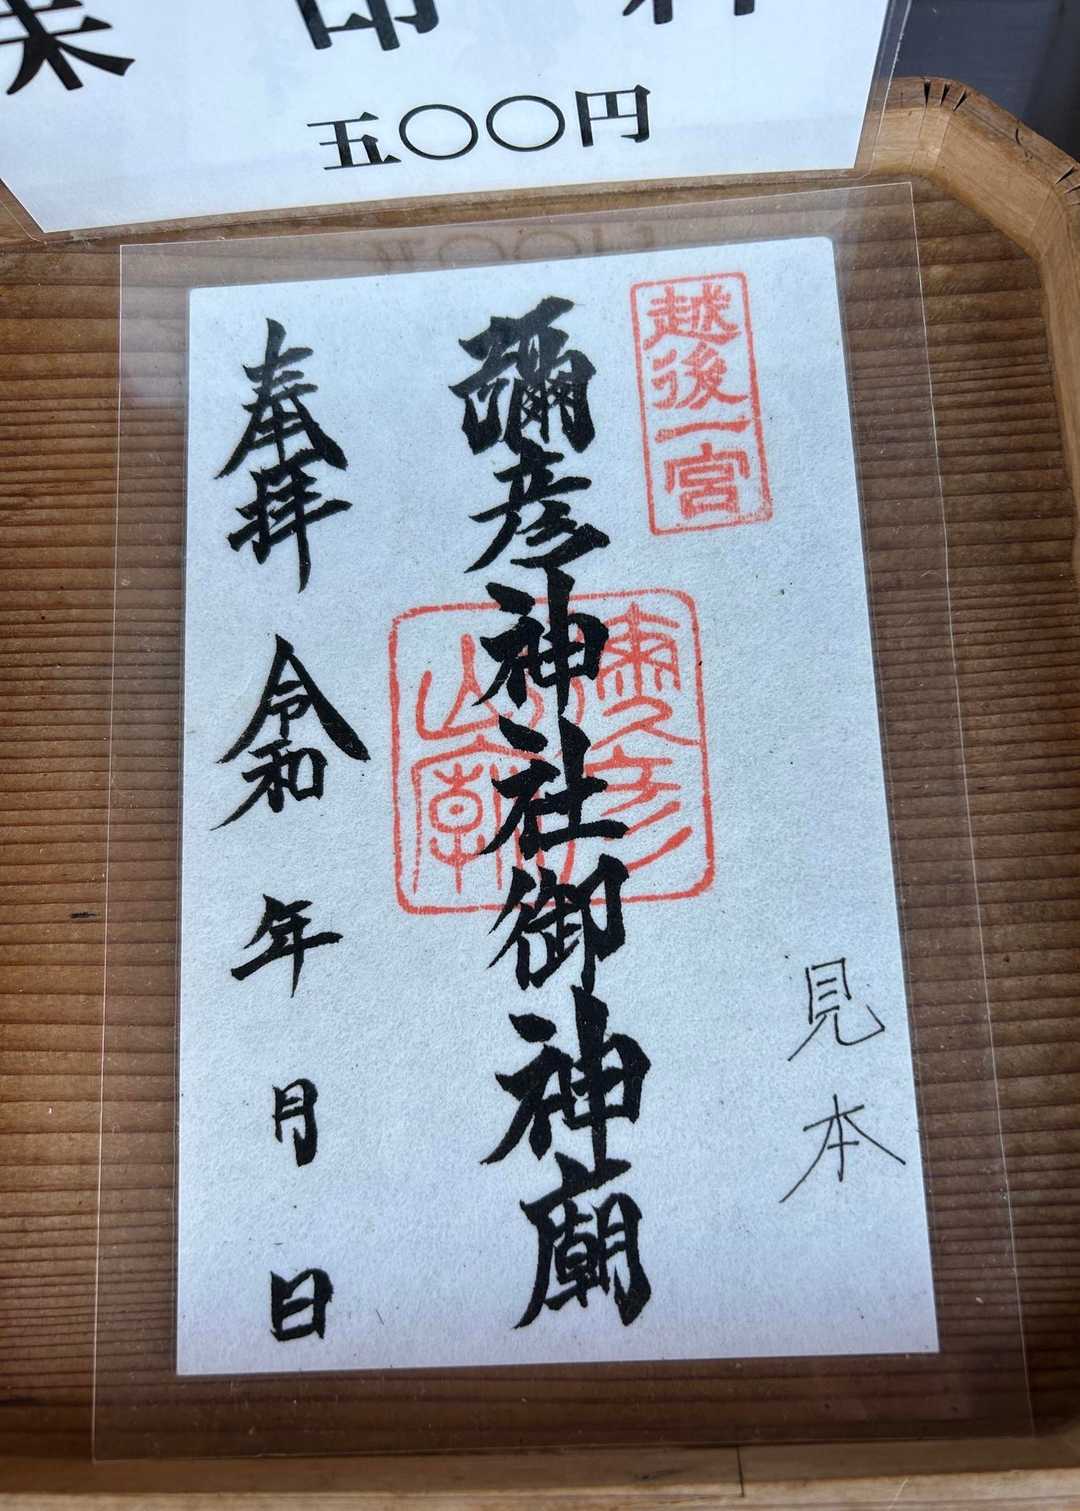 五〇〇円
越後一宮
彌彦神社御神廟
奉拝 令和 年 月 日
見本